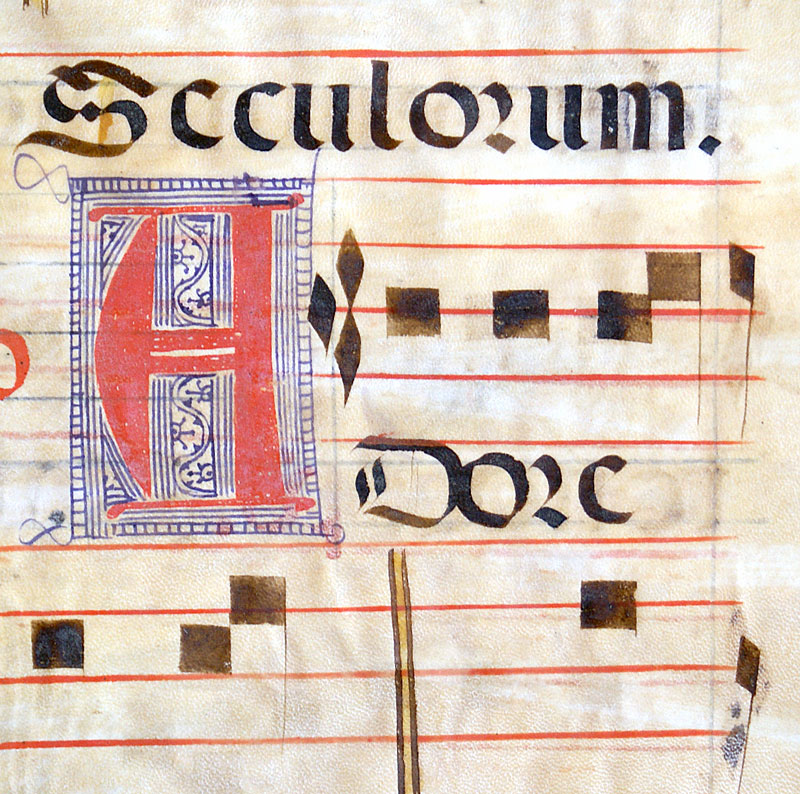 Seculorum.
ADore